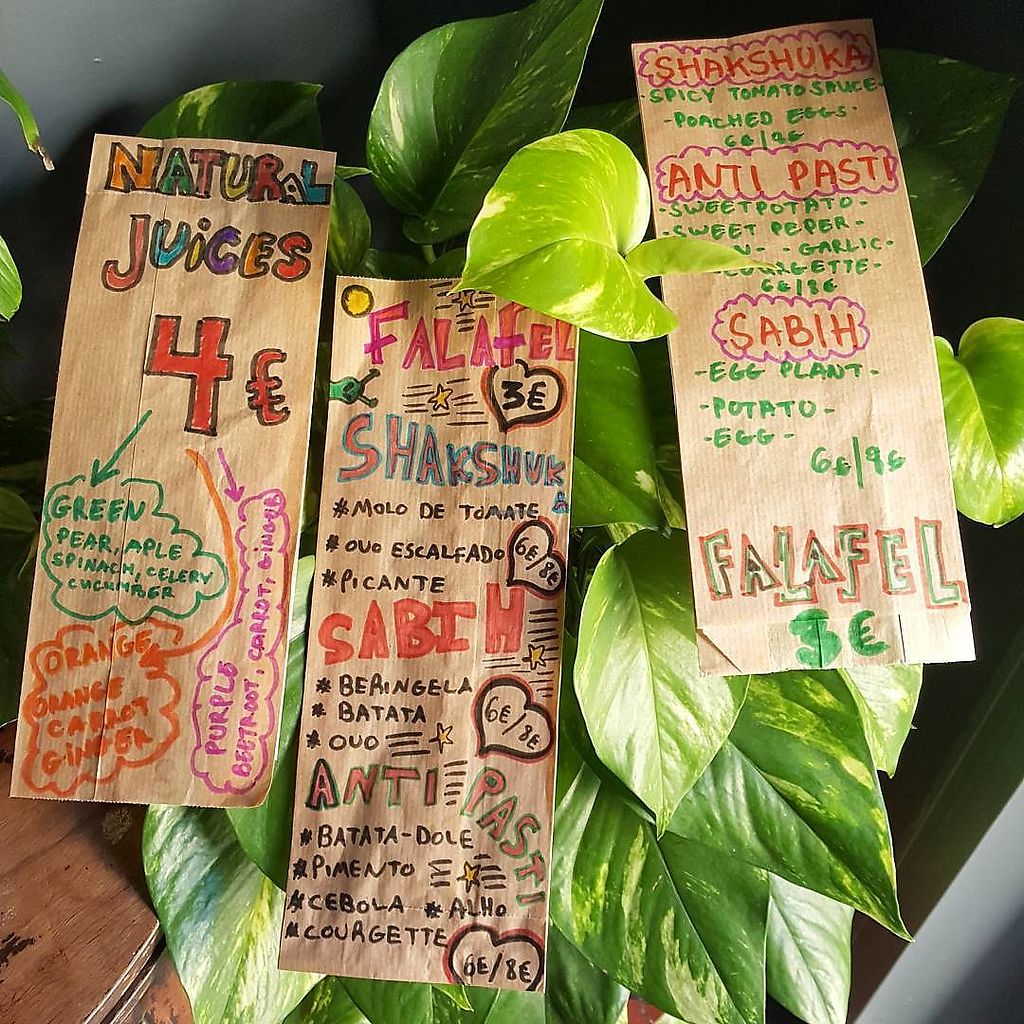 NATURAL
JUiCES
4€
GREEN
PEAR, APLE
SPINACH, CELERY
CUCUMBER
ORANGE
ORANGE
CARROT
GiNGER
PURPLE
BEETROOT, CARROT, GiNGER
FALAFEL
3€
SHAKSHUKA
*MOLO DE TOMATE
*OVO ESCALFADO
6€/8€
*PICANTE
SABIH
*BERINGELA
*BATATA
6€/8€
*OVO
ANTI PASTI
*BATATA-DOLE
*PIMENTO
*CEBOLA *ALHO
*COURGETTE
6€/8€
SHAKSHUKA
-SPICY TOMATO SAUCE
-POACHED EGGS-
ANTI PASTI
-SWEETPOTATO-
-SWEET PEPER-
-GARLIC-
SABIH
-EGG PLANT-
-POTATO-
-EGG-
6€/9€
FALAFEL
3€